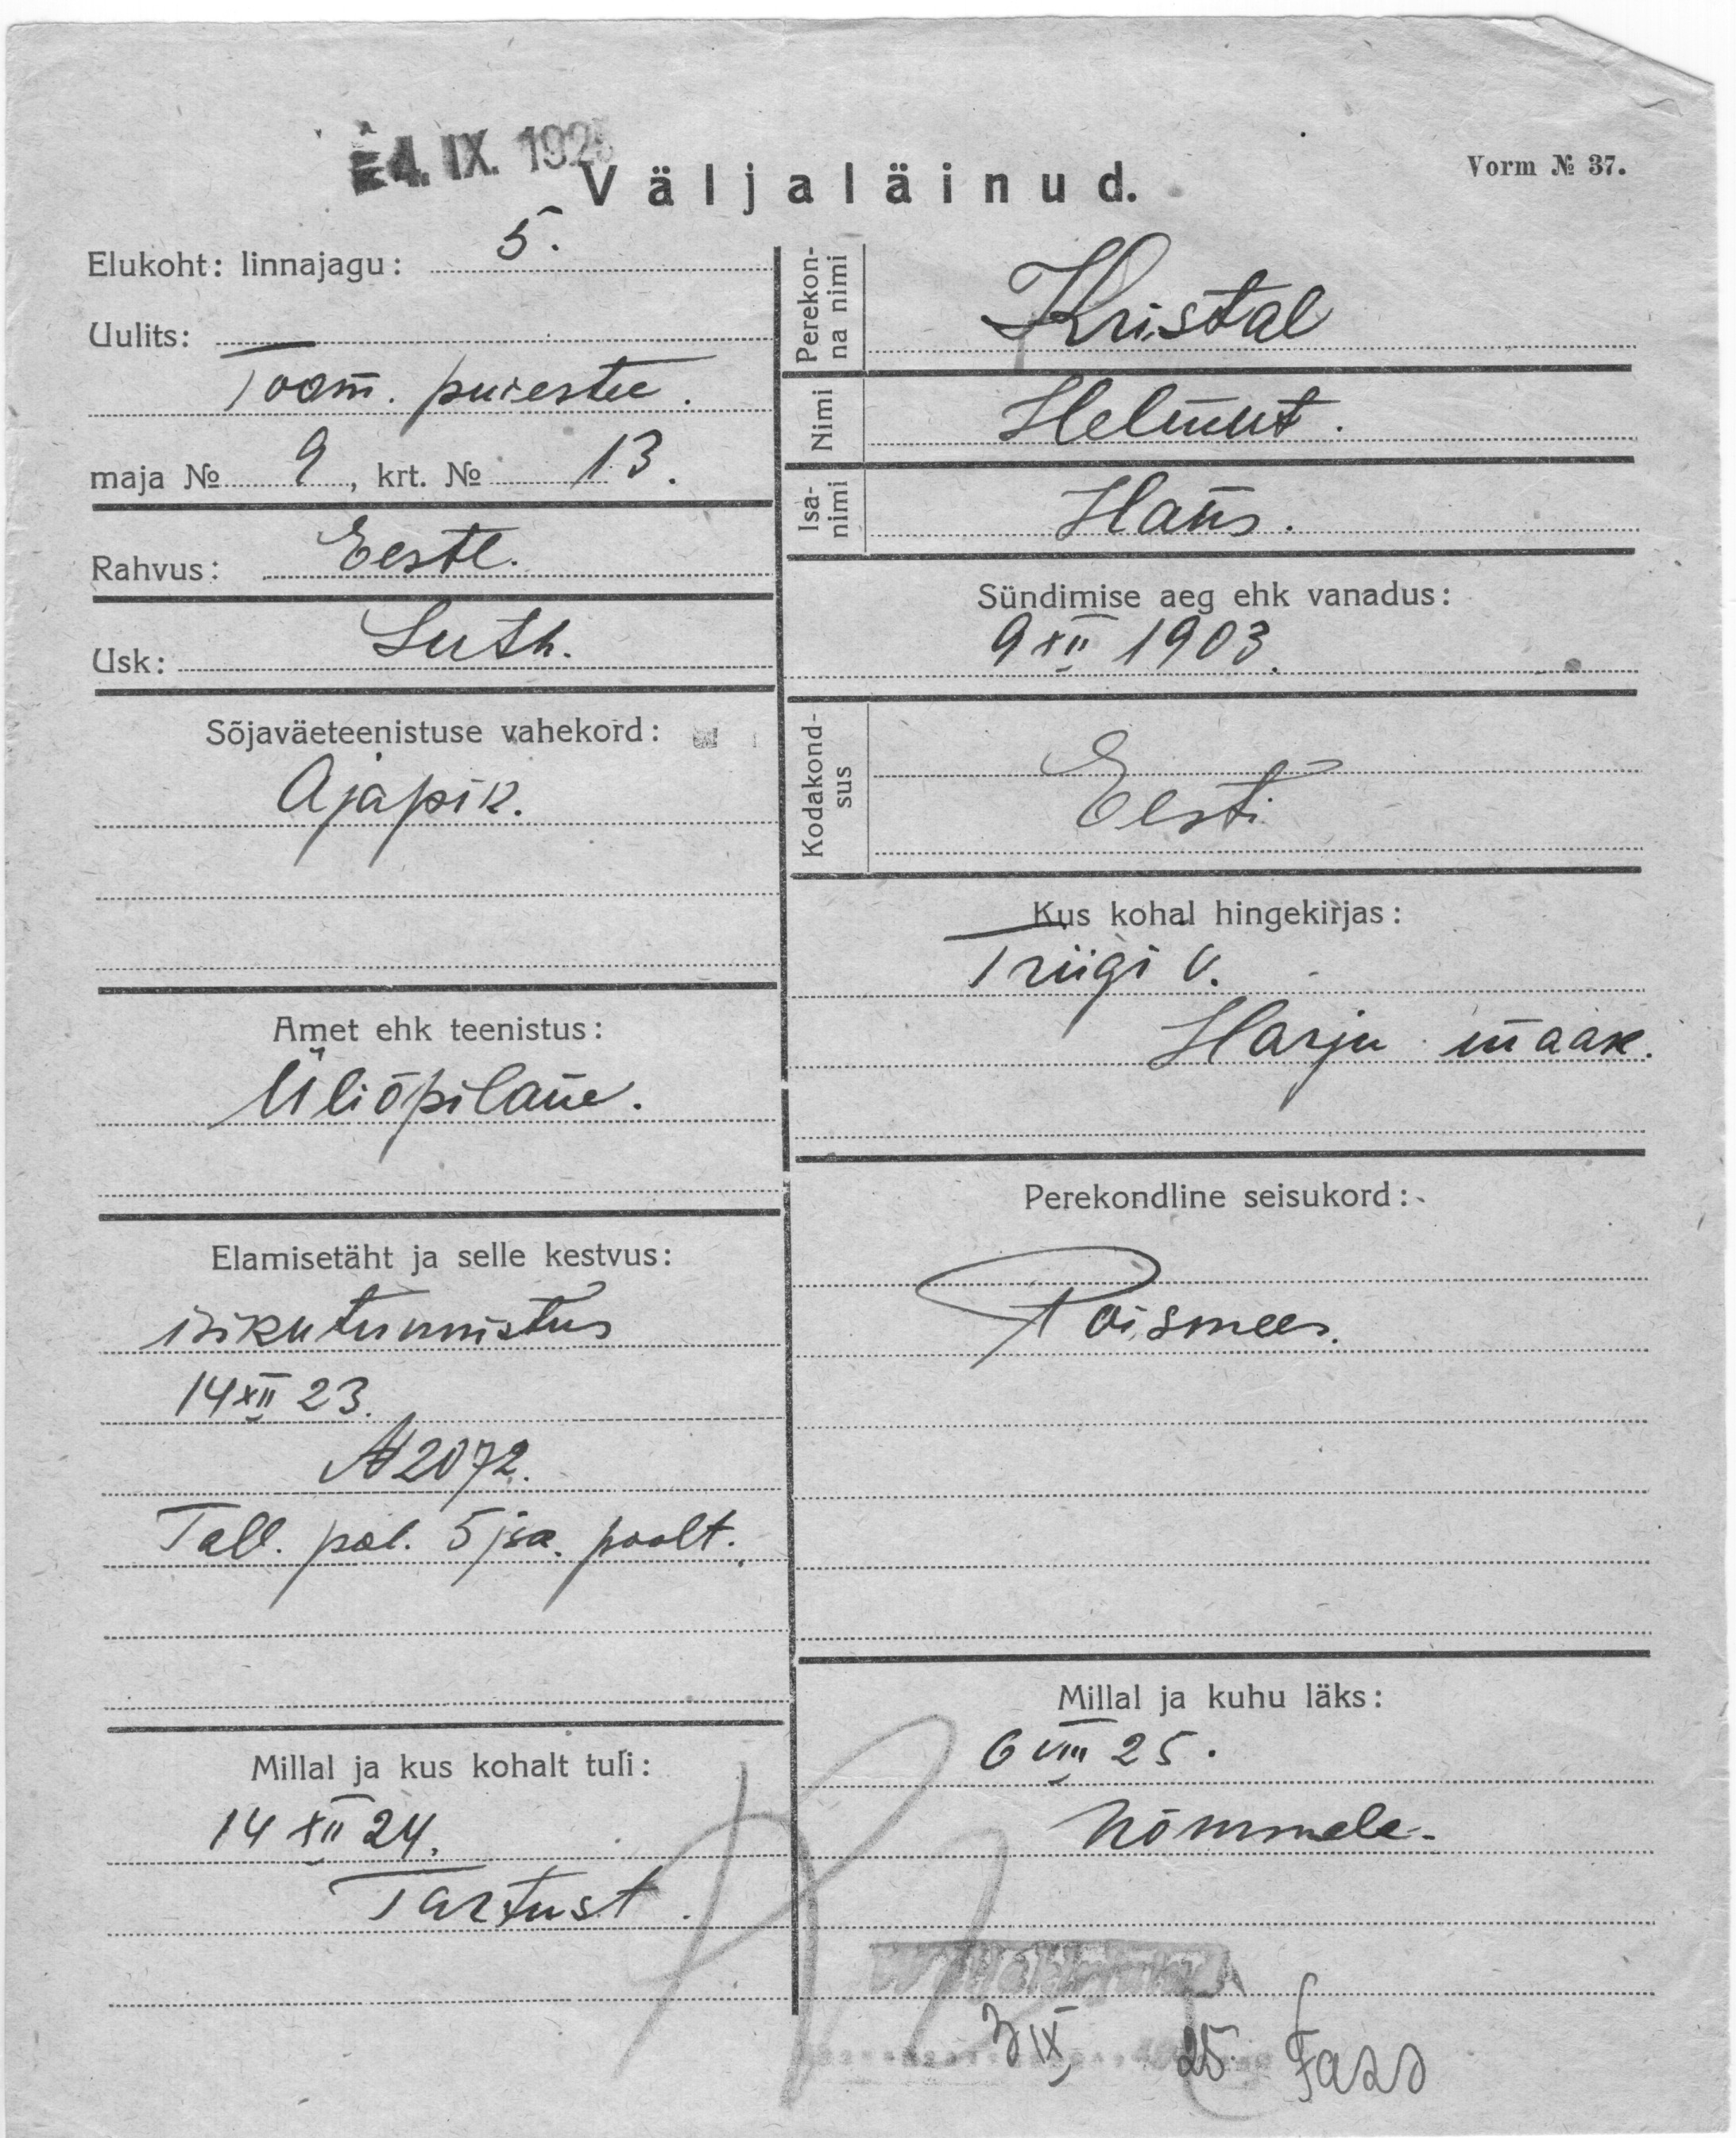 4. IX. 1925
Väljaläinud.
Vorm № 37.
Elukoht: linnajagu: 5.
Uulits:
Toom. puiestee.
maja № 9, krt. № 13.
Rahvus: Eestl.
Usk: Luth.
Sõjaväeteenistuse vahekord:
Ajapik.
Amet ehk teenistus:
Üliõpilane.
Elamisetäht ja selle kestvus:
isikutunnistus
14 XII 23.
№ 2072.
Tall. pol. 5 jsa. poolt.
Millal ja kus kohalt tuli:
14 XII 24.
Tartust.
Perekonna nimi
Kristal
Nimi
Helmut.
Isanimi
Hans.
Sündimise aeg ehk vanadus:
9 XII 1903.
Kodakondsus
Eesti
Kus kohal hingekirjas:
Triigi v.
Harju maak.
Perekondline seisukord:
Poismees.
Millal ja kuhu läks:
6 VIII 25.
Nõmmele.
3 IX 25.